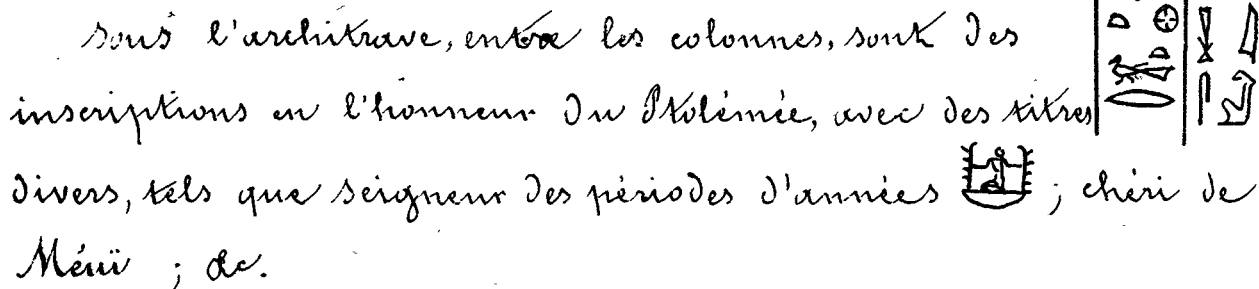 sous l'architrave, entre les colonnes, sont des
inscriptions en l'honneur du Ptolémée, avec des titres
divers, tels que seigneur des périodes d'années ; chéri de
Méüi ; &c.